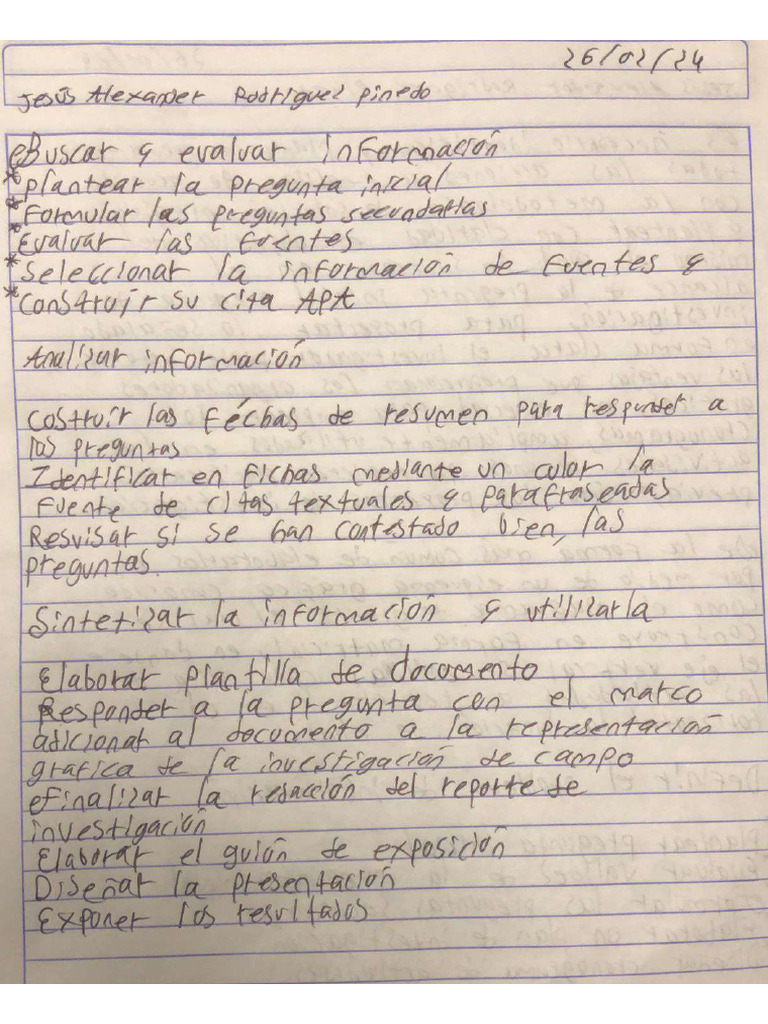 26/02/24
Jesús Alexander Rodriguez Pinedo
eBuscar y evaluar información
*plantear la pregunta inicial
*Formular las preguntas secundarias
*Evaluar las fuentes
*Seleccionar la información de fuentes y
*construir su cita APA
Analizar información
Costruir las féchas de resumen para responder a
las preguntas
Identificar en fichas mediante un color la
fuente de citas textuales y parafraseadas
Resvisar si se han contestado bien, las
preguntas.
Sintetizar la información y utilizarla
Elaborar plantilla de documento
Responder a la pregunta con el marco
adicionat al documento a la representación
grafica de la investigación de campo
eFinalizar la redacción del reporte de
investigación
Elaborar el guión de exposición
Diseñar la presentación
Exponer los resultados